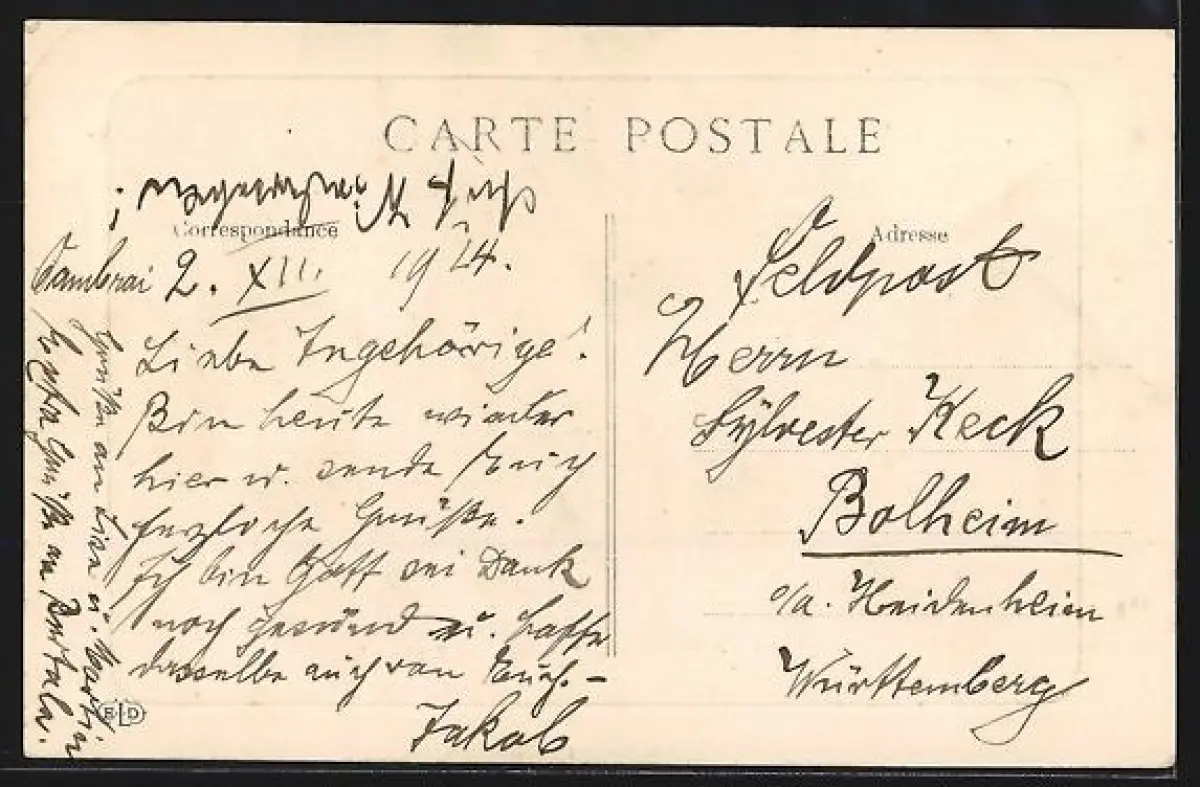 CARTE POSTALE
Correspondance
Cambrai 2. XII. 1914.
Liebe Angehörige!
Bin heute wieder
hier u. sende Euch
herzliche Grüße.
Ich bin Gott sei Dank
noch gesund u. hoffe
dasselbe auch von Euch. –
Jakob
Grüße an
Grüße an
ELD
Adresse
Feldpost
Herrn
Sylvester Keck
Bolheim
o/a. Heidenheim
Württemberg